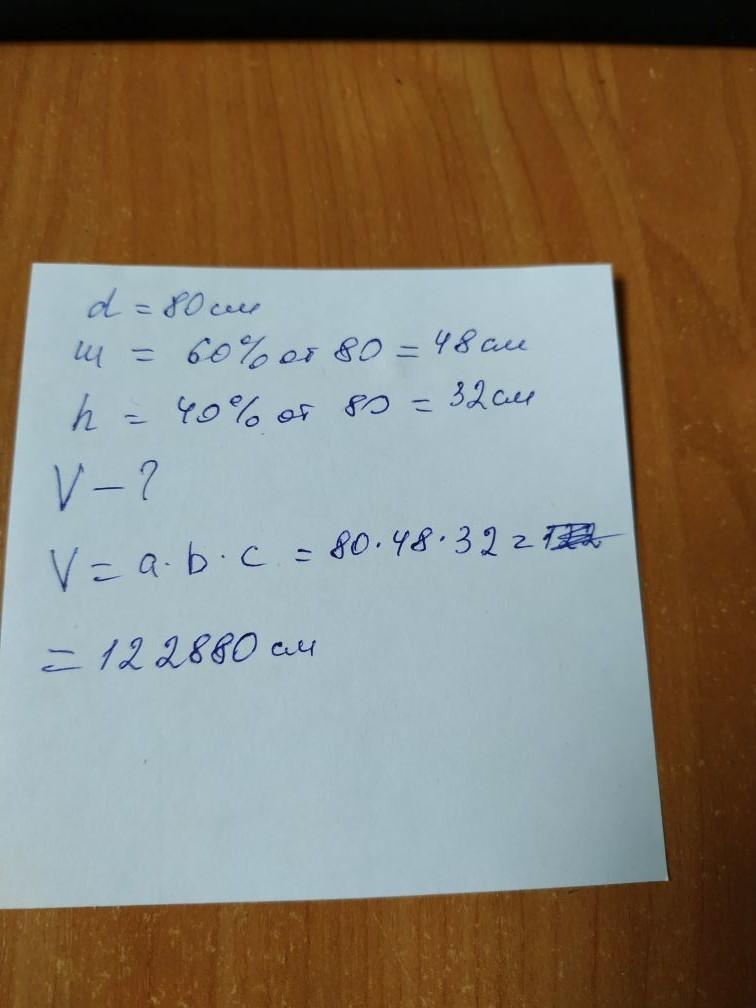 d = 80 см
ш = 60% от 80 = 48 см
h = 40% от 80 = 32 см
V - ?
V = a · b · c = 80 · 48 · 32 =
= 122880 см